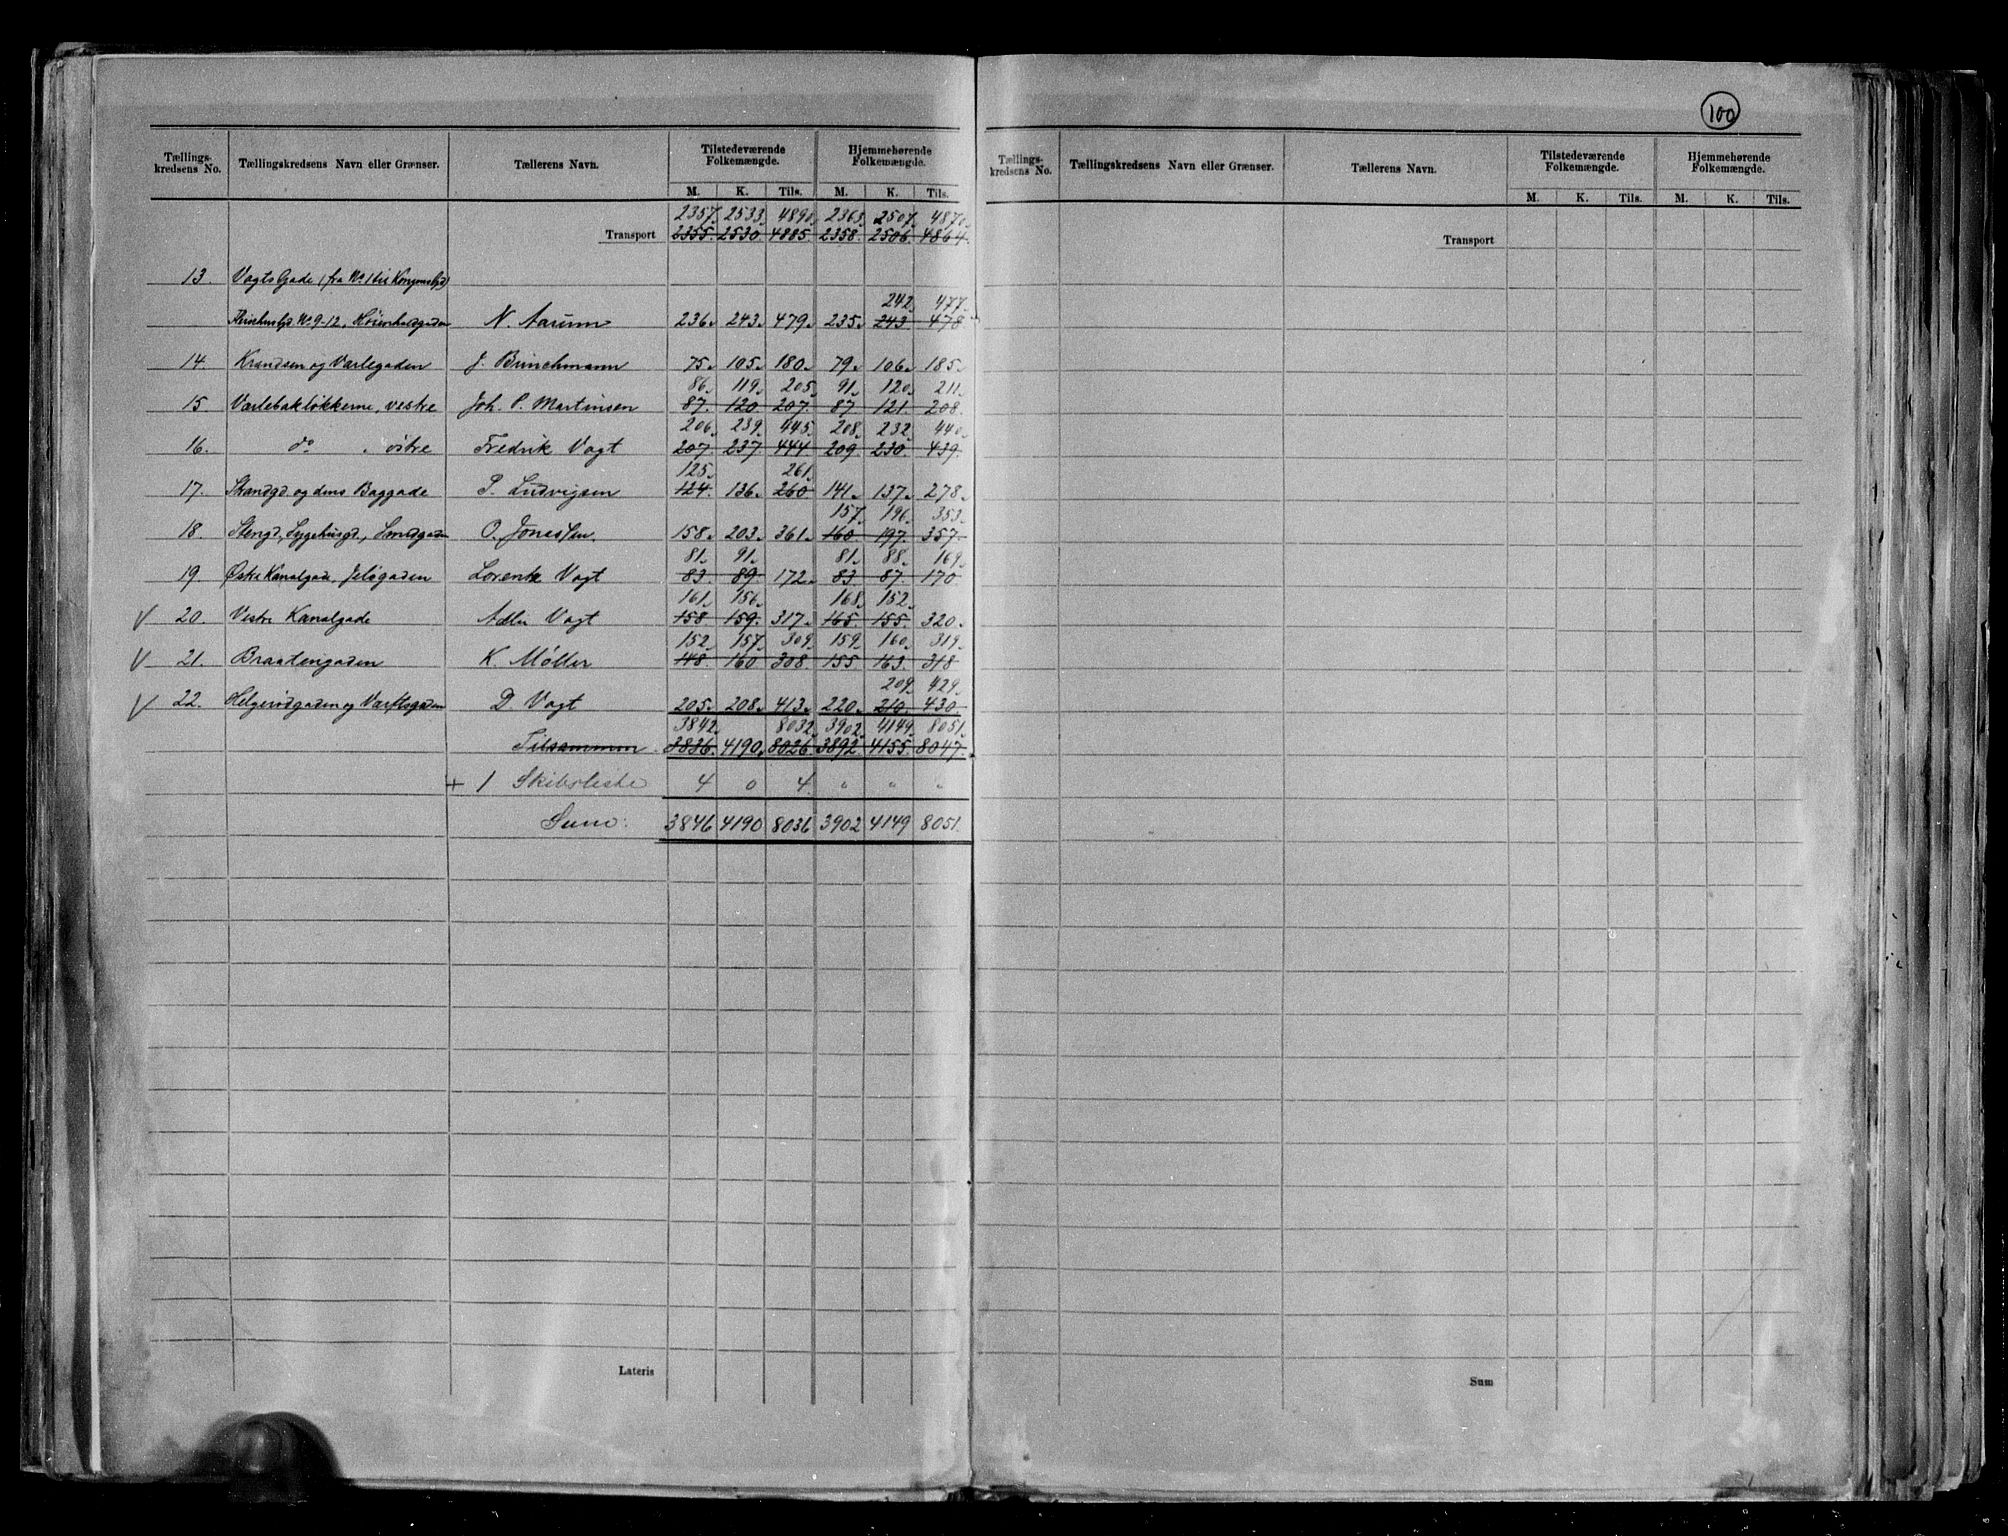 100
Tællings-kredsens No. Tællingskredsens Navn eller Grænser. Tællerens Navn. Tilstedeværende Folkemængde. Hjemmehørende Folkemængde.
M. K. Tils. M. K. Tils.
2357. 2533. 4890. 2363. 2507. 4870.
Transport 2355. 2530 4885. 2358. 2506. 4864.
13. Vogts Gade (fra No 1 til
242. 477.
No 9-12, N. Aarum 236. 243. 479. 235. 243 478
14. Krandsen og Varlegaden J. Brinchmann 75. 105. 180. 79. 106. 185.
86. 119. 205. 91. 120. 211.
15 Varlebakløkkerne, vestre Joh. P. Martinsen 87. 120 207. 87 121. 208.
206. 239. 445. 208. 232. 440.
16. do " østre Fredrik Vogt 207. 237 444 209 230. 439.
125. 261.
17. Strandgd og dens Baggade P. Ludvigsen 124. 136. 260 141. 137. 278.
157. 196. 353.
18. Stengd, Sygehusgd, Smedgaden O. Jonassen. 158. 203. 361. 160. 197. 357.
81. 91. 81. 88. 169.
19. Østre Kanalgade, Jeløgaden Lorentz Vogt 83. 89. 172. 83. 87. 170
161. 156. 168. 152.
V 20. Vestre Kanalgade Adler Vogt 158 159. 317. 165. 155. 320.
152. 157. 309. 159. 160. 319.
V 21. Braatengaden K. Møller 148. 160 308 155 163. 318
209. 429.
V 22. Helgerødgaden og Varftsgaden D. Vogt 205. 208. 413. 220. 210. 430.
3842. 8032. 3902. 4149. 8051.
Tilsammen 3836. 4190. 8026 3892. 4155. 8047.
+ 1 Skibsliste 4 0 4. " " "
Sum: 3846 4190 8036 3902 4149 8051.
Lateris
Tællings-kredsens No. Tællingskredsens Navn eller Grænser. Tællerens Navn. Tilstedeværende Folkemængde. Hjemmehørende Folkemængde.
M. K. Tils. M. K. Tils.
Transport
Sum